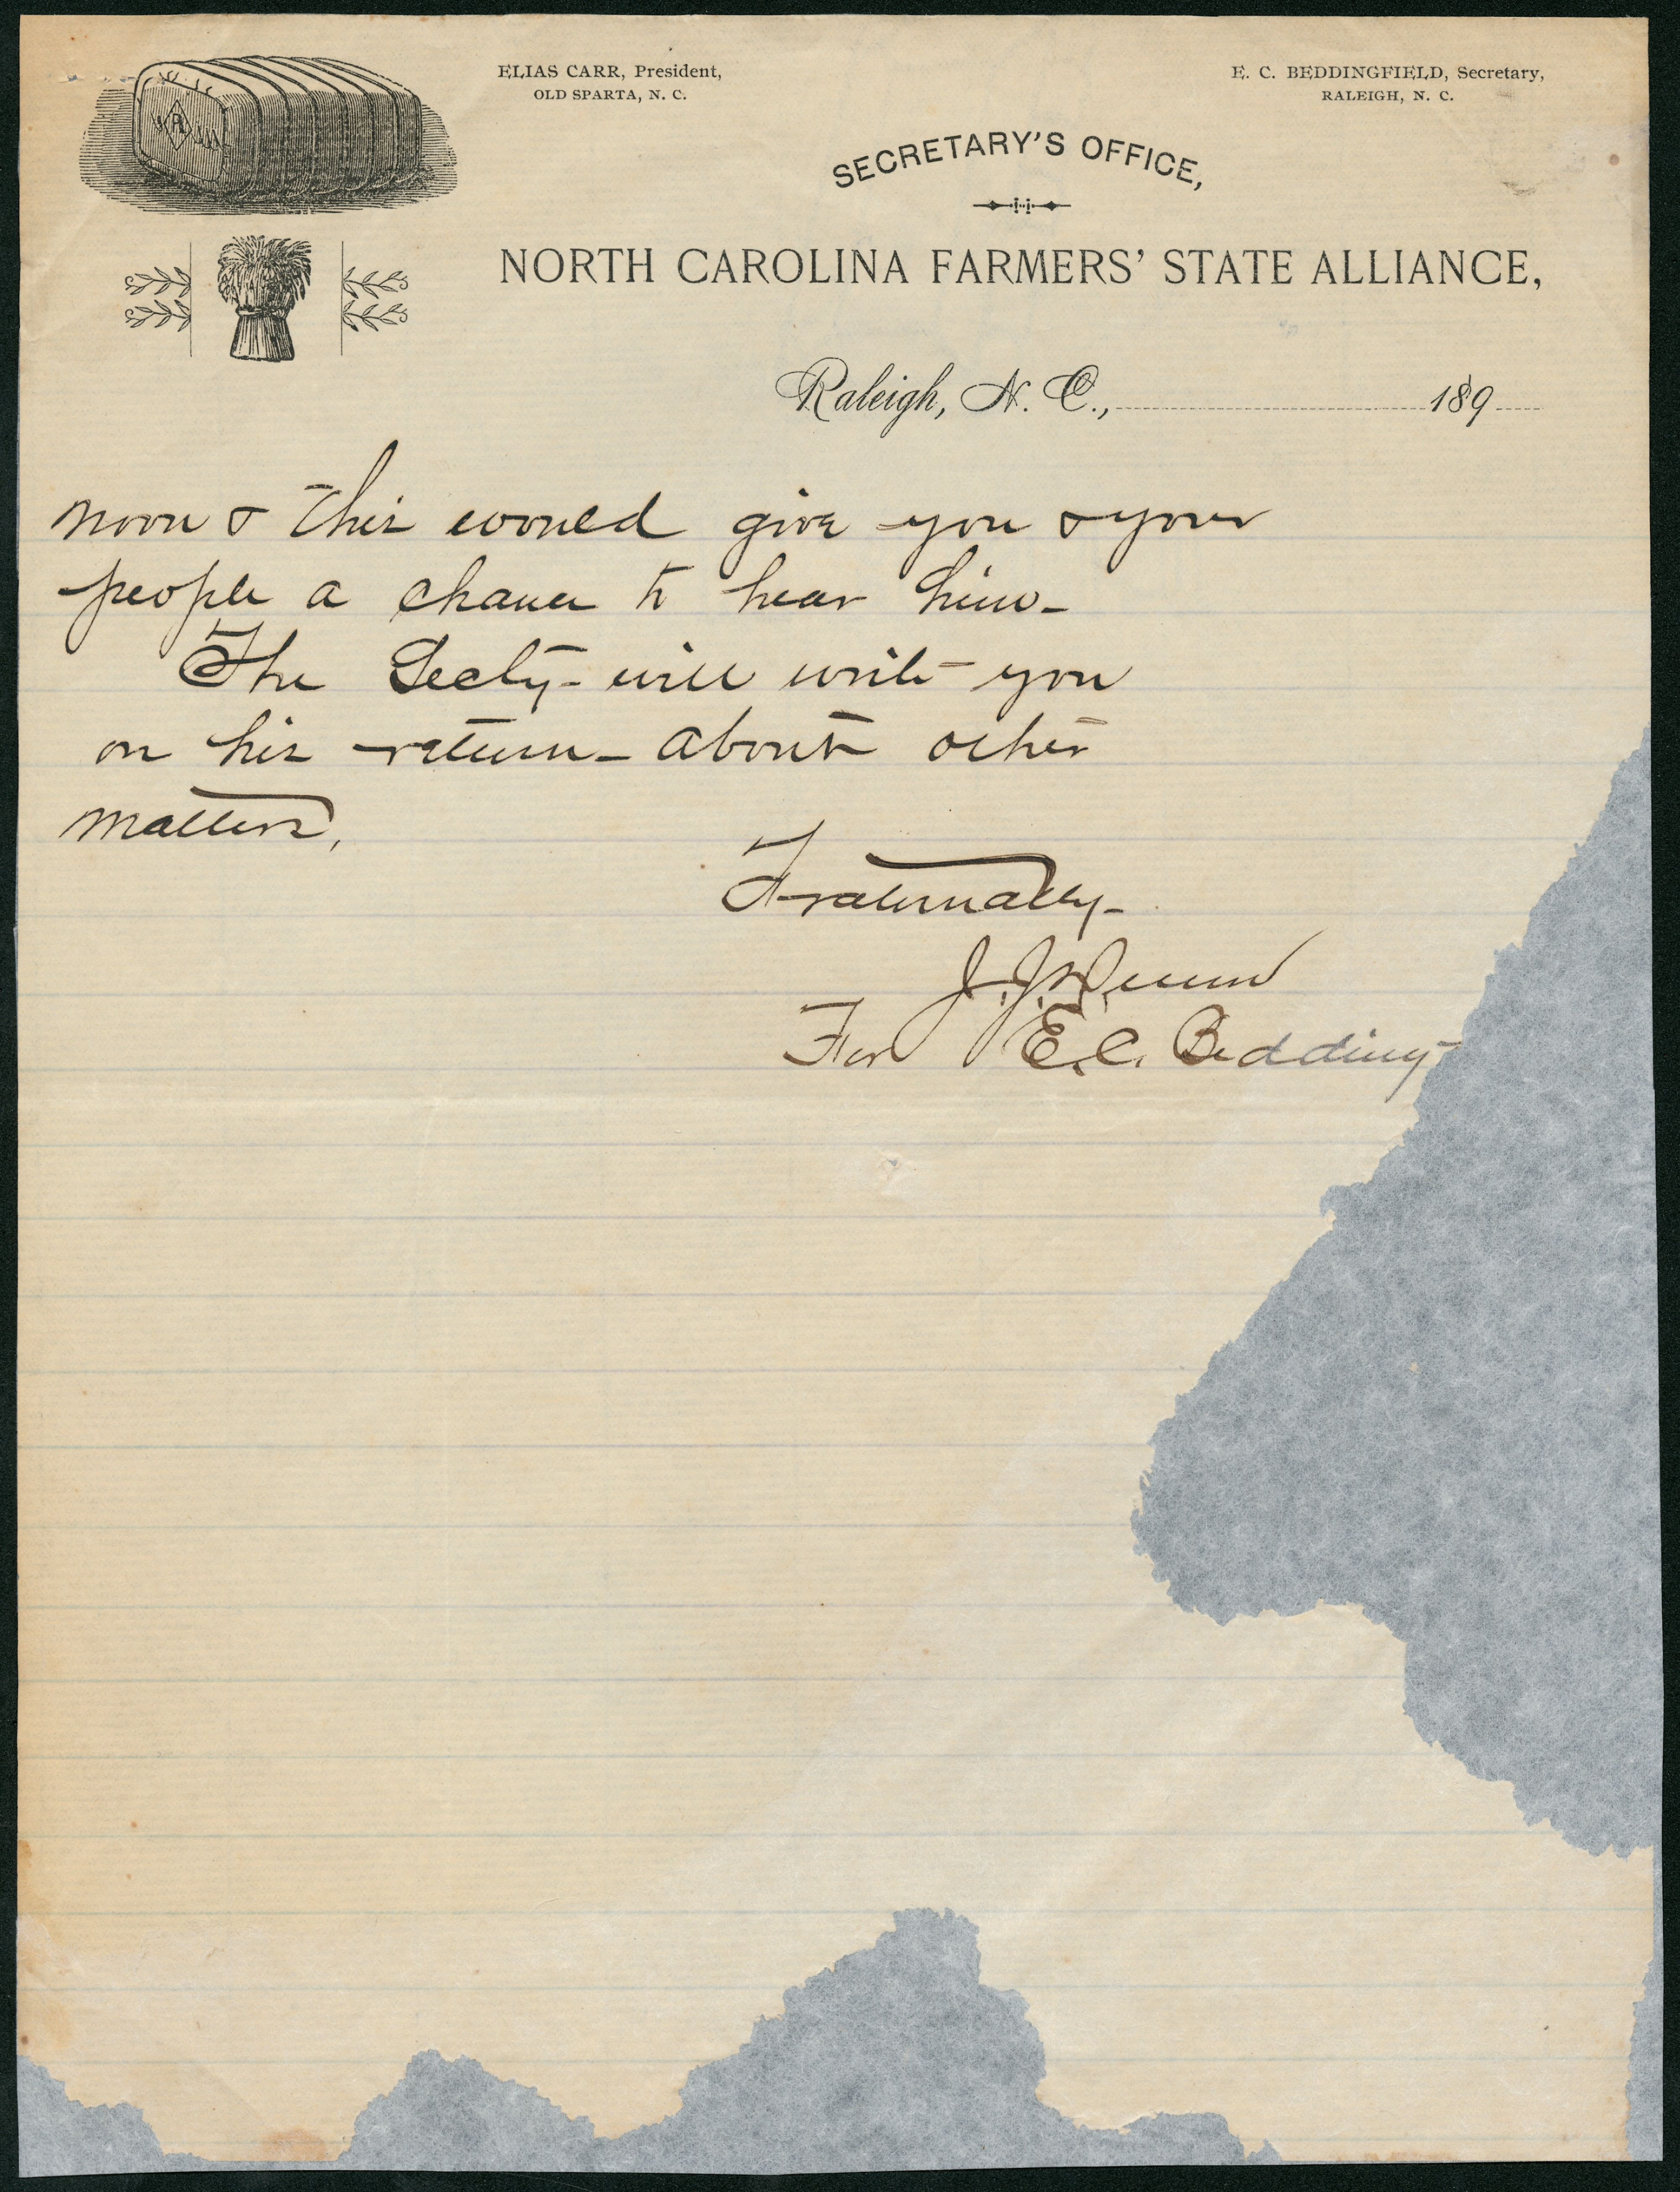 ELIAS CARR, President,
OLD SPARTA, N. C.
E. C. BEDDINGFIELD, Secretary,
RALEIGH, N. C.
SECRETARY'S OFFICE,
NORTH CAROLINA FARMERS' STATE ALLIANCE,
Raleigh, N. C., 189
noon & this would give you & your
people a chance to hear him-
The Secty- will write you
on his return- about other
matters,
Fraternally-
J. J.
For E. C. Bedding